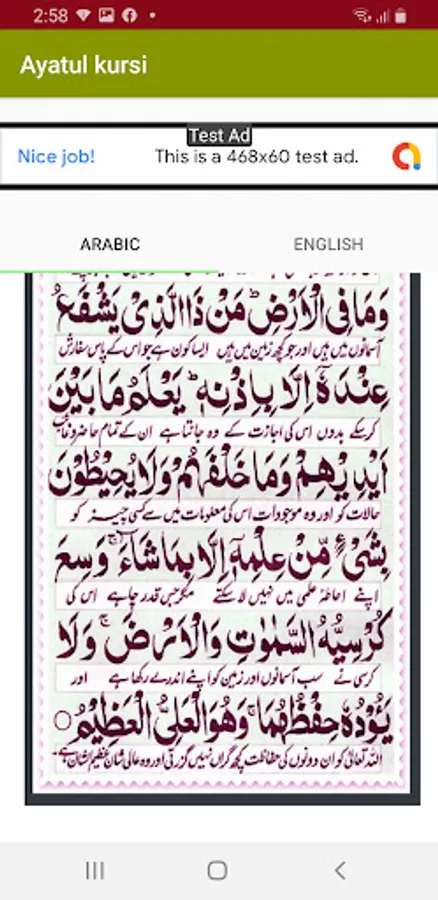 2:58
Ayatul kursi
Test Ad
Nice job!
This is a 468x60 test ad.
ARABIC
ENGLISH
وَمَا فِى الْاَرْضِ ؕ مَنْ ذَا الَّذِىْ يَشْفَعُ
آسمانوں میں ہیں اور جو کچھ زمین میں ہیں ایسا کون ہے جو اس کے پاس سفارش
عِنْدَهٗۤ اِلَّا بِاِذْنِهٖ ؕ يَعْلَمُ مَا بَيْنَ
کرسکے بدوں اس کی اجازت کے وہ جانتا ہے ان کے تمام حاضر و غائب
اَيْدِيْهِمْ وَمَا خَلْفَهُمْ وَلَا يُحِيْطُوْنَ
حالات کو اور وہ موجودات اس کی معلومات میں سے کسی چیز کو
بِشَىْءٍ مِّنْ عِلْمِهٖۤ اِلَّا بِمَا شَآءَ ۚ وَسِعَ
اپنے احاطۂ علمی میں نہیں لا سکتے مگر جس قدر چاہے اس کی
كُرْسِيُّهُ السَّمٰوٰتِ وَالْاَرْضَ ۚ وَلَا
کرسی نے سب آسمانوں اور زمین کو اپنے اندر لے رکھا ہے اور
يَـُٔوْدُهٗ حِفْظُهُمَا ۚ وَهُوَ الْعَلِىُّ الْعَظِيْمُ ۝
اللہ تعالیٰ کو ان دونوں کی حفاظت کچھ گراں نہیں گزرتی اور وہ عالی شان عظیم الشان ہے۔